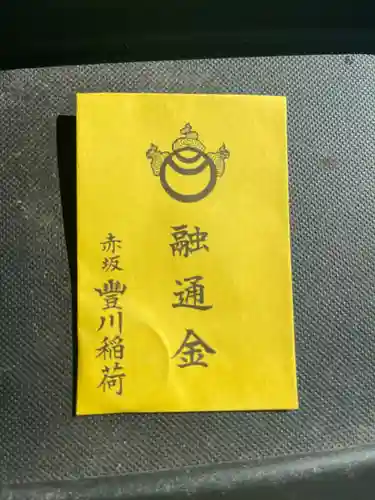 融通金
赤坂
豐川稲荷